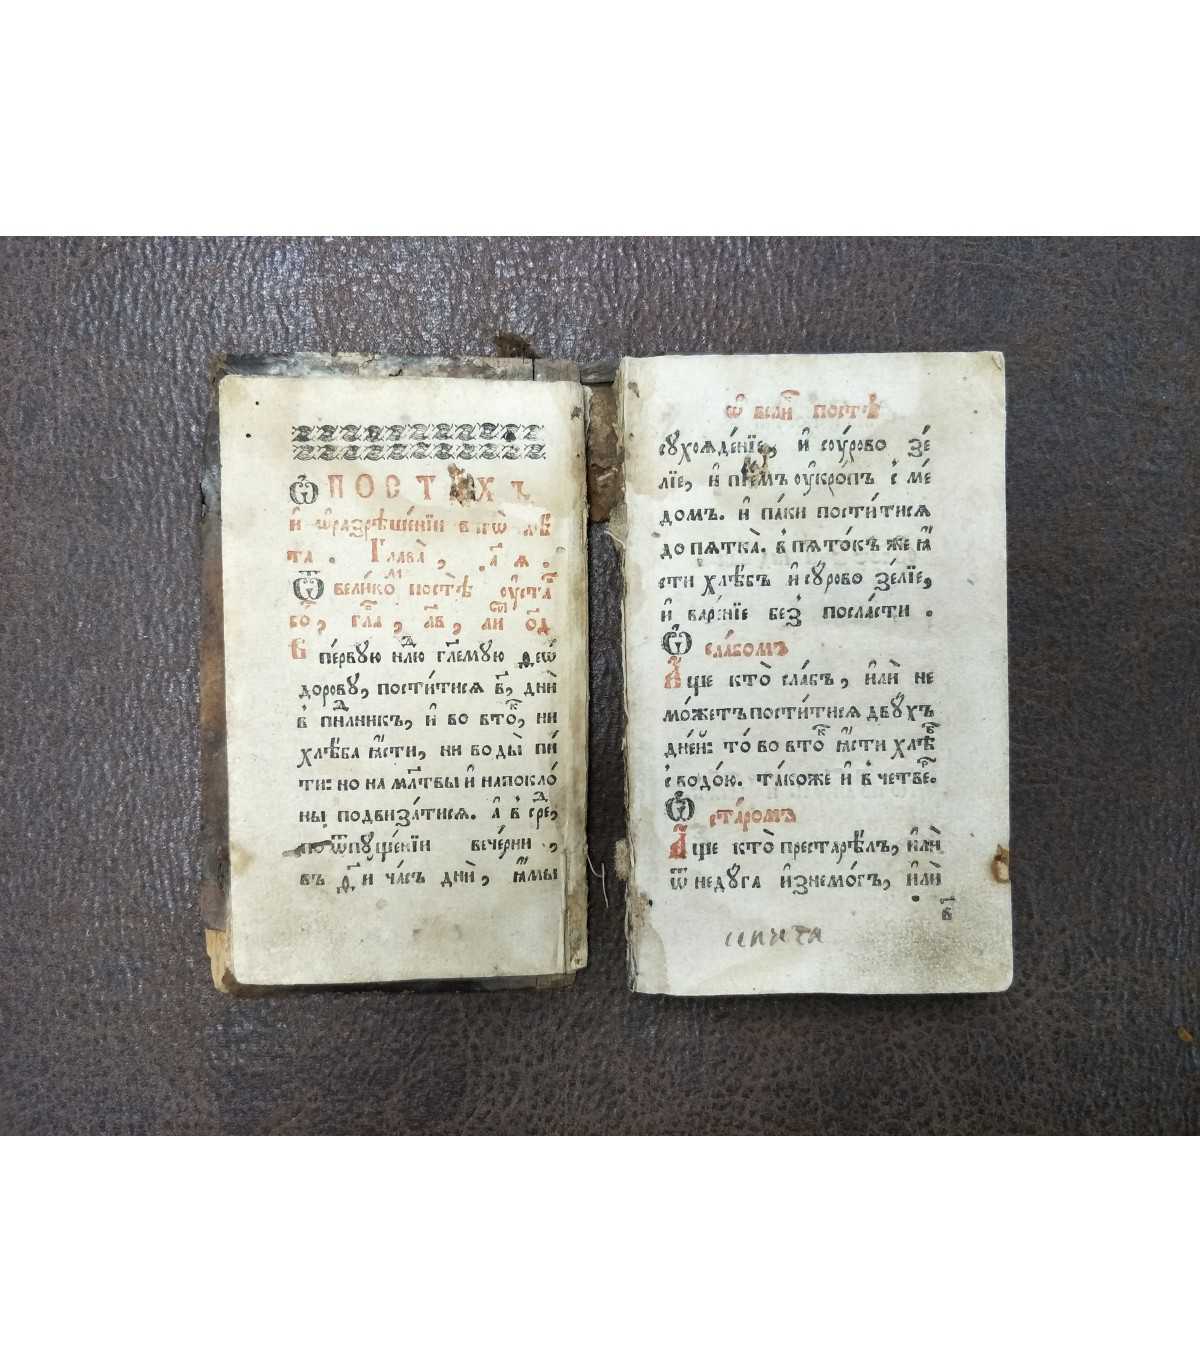 Ѽ ПОСТѢХЪ
и҆ ѡ҆ разрѣше́нїи в пѡ҇ лѣ҇
та . Глава̀ , а҃ ѧ .
Ѿ вели́коⷨ постѣ̀ ᲂу҆стаⷡ҇
во , глⷡ҇а ,
В пе́рвꙋю нлⷣю гл҃емꙋю ѳео́
доровꙋ, пости́тисѧ в҃, дни̑
в пнⷣлникъ, и҆ во втоⷬ҇, ни
хлѣ́ба ꙗ҆́сти, ни воды̀ пи́
ти: но на мл҃твы и҆ на покло́
ны подвиза́тисѧ. А҆ в среⷣ,
по ѿпꙋще́нїи вече́рни ,
въ ѳ҃ и часъ дни̑, ꙗ҆́мы
ѡ҆ всѧⷩ҇ постѣ
сꙋхоѧде́нїе, и҆ сꙋ́рово зе́
лїе, и҆ пїе́мъ ᲂу҆кро́пъ с ме́
домъ. и҆ па́ки пости́тисѧ
до пѧтка̀. в пѧто́къ же ꙗ҆́
сти хлѣ́бъ и҆ сꙋ́рово зе́лїе,
и҆ варе́нїе без̾ посла́сти .
Ѽ сла́бомъ
А҆́ще кто̀ сла́бъ, и҆лѝ не
мо́жетъ пости́тисѧ двꙋ́хъ
дне́й: то̀ во втоⷬ҇ ꙗ҆́сти хлѣⷠ҇
с водо́ю. та́коже и҆ в четвеⷬ҇.
Ѽ ста́ромъ
А҆́ще кто̀ престарѣ́лъ, и҆лѝ
ѿ недꙋ́га и҆знемо́гъ, и҆лѝ
в҃